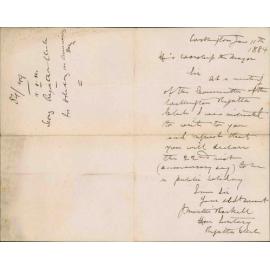 Jan 11th
1884
His Worship the Mayor
Sir
At a meeting
of the Committee of the
Regatta
Club I was instructed
to write to you
and request that
you will declare
the 22nd inst
(anniversary day) to be
a public holiday
I am Sir
Your obt Servant
Hon Secretary
Regatta Club
Secy Regatta Club